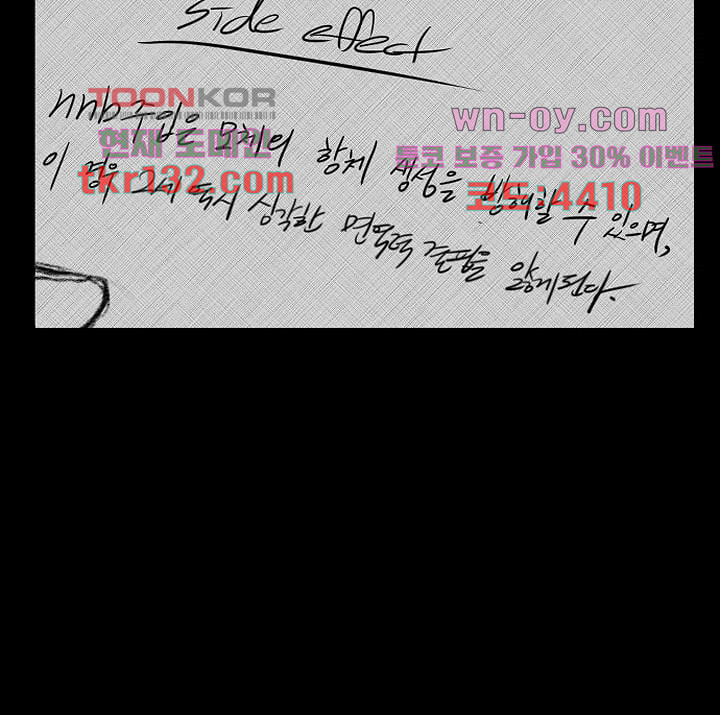 side effect
TOONKOR
wn-oy.com
nnb주입은 모체의 항체 생성을 방해할 수 있으며,
현재 도메인
툰코 보증 가입 30% 이벤트
tkr132.com
코드:4410
이 경우 그 즉시 심각한 면역력 결핍을 앓게된다.